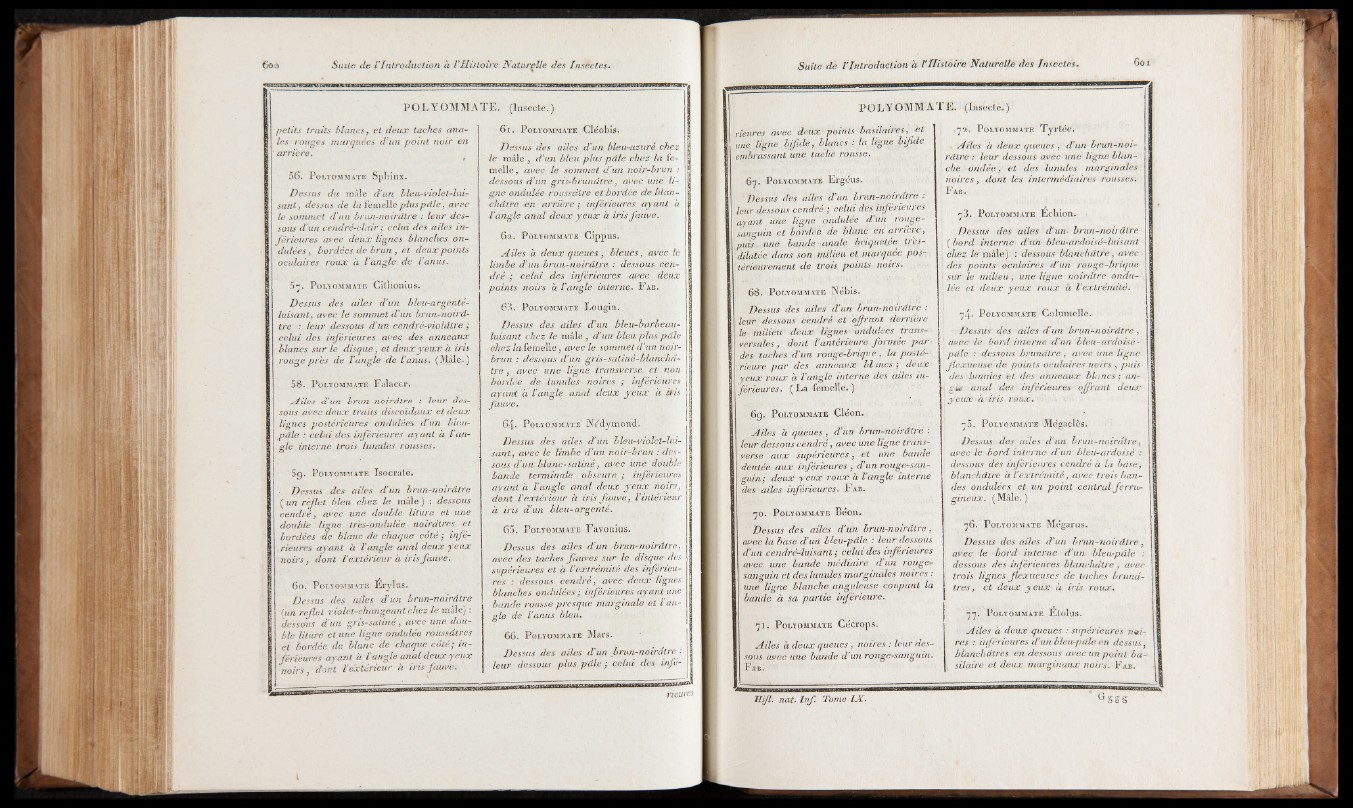 600
Suite de l'Introduction à l'Histoire Naturelle des Insectes.
POLYOMMATE. (Insecte.)
petits traits blancs, et deux taches ana-
les rouges marquées d'un point noir en
arrière.
56. POLYOMMATE Sphinx.
Dessus du mâle d'un bleu-violet-lui-
sant, dessus de la femelle plus pâle, avec
le sommet d'un brun-noirâtre : leur des-
sous d'un cendré-clair ; celui des ailes in-
férieures avec deux lignes blanches on-
dulées, bordées de brun, et deux points
oculaires roux à l'angle de l'anus.
57. POLYOMMATE Cithonius.
Dessus des ailes d'un bleu-argenté-
luisant, avec le sommet d'un brun-noirâ-
tre : leur dessous d'un cendré-violâtre ;
celui des inférieures avec des anneaux
blancs sur le disque, et deux yeux à iris
rouge près de l'angle de l'anus. (Mâle.)
58. POLYOMMATE Falacer.
Ailes d'un brun-noirâtre : leur des-
sous avec deux traits discoïdaux et deux
lignes postérieures ondulées d'un bleu-
pâle : celui des inférieures ayant à l'an-
gle interne trois lunules rousses.
59. POLYOMMATE Isocrate.
Dessus des ailes d'un brun-noirâtre
(un reflet bleu chez le mâle) : dessous
cendré, avec une double liture et une
double ligne très-ondulée noirâtres et
bordées de blanc de chaque côté ; infé-
rieures ayant à l'angle anal deux yeux
noirs, dont l'extérieur à iris fauve.
60. POLYOMMATE Érylus.
Dessus des ailes d'un brun-noirâtre
(un reflet violet-changeant chez le mâle) :
dessous d'un gris-satiné, avec une dou-
ble liture et une ligne ondulée roussâtres
et bordée de blanc de chaque côté ; in-
férieures ayant à l'angle anal deux yeux
noirs, dont l'extérieur à iris fauve.
61. POLYOMMATE Cléobis.
Dessus des ailes d'un bleu-azuré chez
le mâle, d'un bleu plus pâle chez la fe-
melle, avec le sommet d'un noir-brun :
dessous d'un gris-brunâtre, avec une li-
gne ondulée roussâtre et bordée de blan-
châtre en arrière ; inférieures ayant à
l'angle anal deux yeux à iris fauve.
62. POLYOMMATE Cippus.
Ailes à deux queues, bleues, avec le
limbe d'un brun-noirâtre : dessous cen-
dré ; celui des inférieures avec deux
points noirs à l'angle interne. FAB.
63. POLYOMMATE Longin.
Dessus des ailes d'un bleu-barbeau-
luisant chez le mâle, d'un bleu plus pâle
chez la femelle, avec le sommet d'un noir-
brun : dessous d'un gris-satiné-blanchâ-
tre, avec une ligne transverse et non
bordée de lunules noires ; inférieures
ayant à l'angle anal deux yeux à iris
fauve.
64. POLYOMMATE Nédymond.
Dessus des ailes d'un bleu-violet-lui-
sant, avec le limbe d'un noir-brun : des-
sous d'un blanc-satiné, avec une double
bande terminale obscure ; inférieures
ayant à l'angle anal deux yeux noirs,
dont l'extérieur à iris fauve, l'intérieur
à iris d'un bleu-argenté.
65. POLYOMMATE Favonius.
Dessus des ailes d'un brun-noirâtre,
avec des taches fauves sur le disque des
supérieures et à l'extrémité des inférieu-
res : dessous cendré, avec deux lignes
blanches ondulées ; inférieures ayant une
bande rousse presque marginale et l'an-
gle de l'anus bleu.
66. POLYOMMATE Mars.
Dessus des ailes d'un brun-noirâtre :
leur dessous plus pâle ; celui des infé-
rieures
Suite de l'Introduction à l'Histoire Naturelle des Insectes.
601
POLYOMMATE. (Insecte.)
rieures avec deux points basilaires, et
une ligne bifide, blancs : la ligne bifide
embrassant une tache rousse.
67. POLYOMMATE Ergéus.
Dessus des ailes d'un brun-noirâtre :
leur dessous cendré ; celui des inférieures
ayant une ligne ondulée d'un rouge-
sanguin et bordée de blanc en arrière,
puis une bande anale briquetée très-
dilatée dans son milieu et marquée pos-
térieurement de trois points noirs.
68. POLYOMMATE Nébis.
Dessus des ailes d'un brun-noirâtre :
leur dessous cendré et offrant derrière
le milieu deux lignes ondulées trans-
versales, dont l'antérieure formée par
des taches d'un rouge-brique, la posté-
rieure par des anneaux blancs ; deux
yeux roux à l'angle interne des ailes in-
férieures. (La femelle.)
69. POLYOMMATE Cléon.
Ailes à queues, d'un brun-noirâtre :
leur dessous cendré, avec une ligne trans-
verse aux supérieures, et une bande
dentée aux inférieures, d'un rouge-san-
guin ; deux yeux roux à l'angle interne
des ailes inférieures. FAB.
70. POLYOMMATE Béon.
Dessus des ailes d'un brun-noirâtre,
avec la base d'un bleu-pâle : leur dessous
d'un cendré-luisant ; celui des inférieures
avec une bande médiaire d'un rouge-
sanguin et des lunules marginales noires :
une ligne blanche anguleuse coupant la
bande à sa partie inférieure.
71. POLYOMMATE Cécrops.
Ailes à deux queues, noires : leur des-
sous avec une bande d'un rouge-sanguin.
FAB.
72. POLYOMMATE Tyrtée.
Ailes à deux queues, d'un brun-noi-
râtre : leur dessous avec une ligne blan-
che ondée, et des lunules marginales
noires, dont les intermédiaires rousses.
FAB.
73. POLYOMMATE Échion.
Dessus des ailes d'un brun-noirâtre
(bord interne d'un bleu-ardoisé-luisant
chez le mâle) : dessous blanchâtre, avec
des points oculaires d'un rouge-brique
sur le milieu, une ligne noirâtre ondu-
lée et deux yeux roux à l'extrémité.
74. POLYOMMATE Columelle.
Dessus des ailes d'un brun-noirâtre,
avec le bord interne d'un bleu-ardoisé-
pâle : dessous brunâtre, avec une ligne
flexueuse de points oculaires noirs, puis
des lunules et des anneaux blancs ; an-
gle anal des inférieures offrant deux
yeux à iris roux.
75. POLYOMMATE Mégaclès.
Dessus des ailes d'un brun-noirâtre,
avec le bord interne d'un bleu-ardoisé :
dessous des inférieures cendré à la base,
blanchâtre à l'extrémité, avec trois ban-
des ondulées et un point central ferru-
gineux. (Mâle.)
76. POLYOMMATE Mégarus.
Dessus des ailes d'un brun-noirâtre,
avec le bord interne d'un bleu-pâle :
dessous des inférieures blanchâtre, avec
trois lignes flexueuses de taches brunâ-
tres, et deux yeux à iris roux.
77. POLYOMMATE Étolus.
Ailes à deux queues : supérieures noi-
res : inférieures d'un bleu-pâle en dessus,
blanchâtres en dessous avec un point ba-
silaire et deux marginaux noirs. FAB.
Hist. nat. Inf. Tome IX.
Gggg